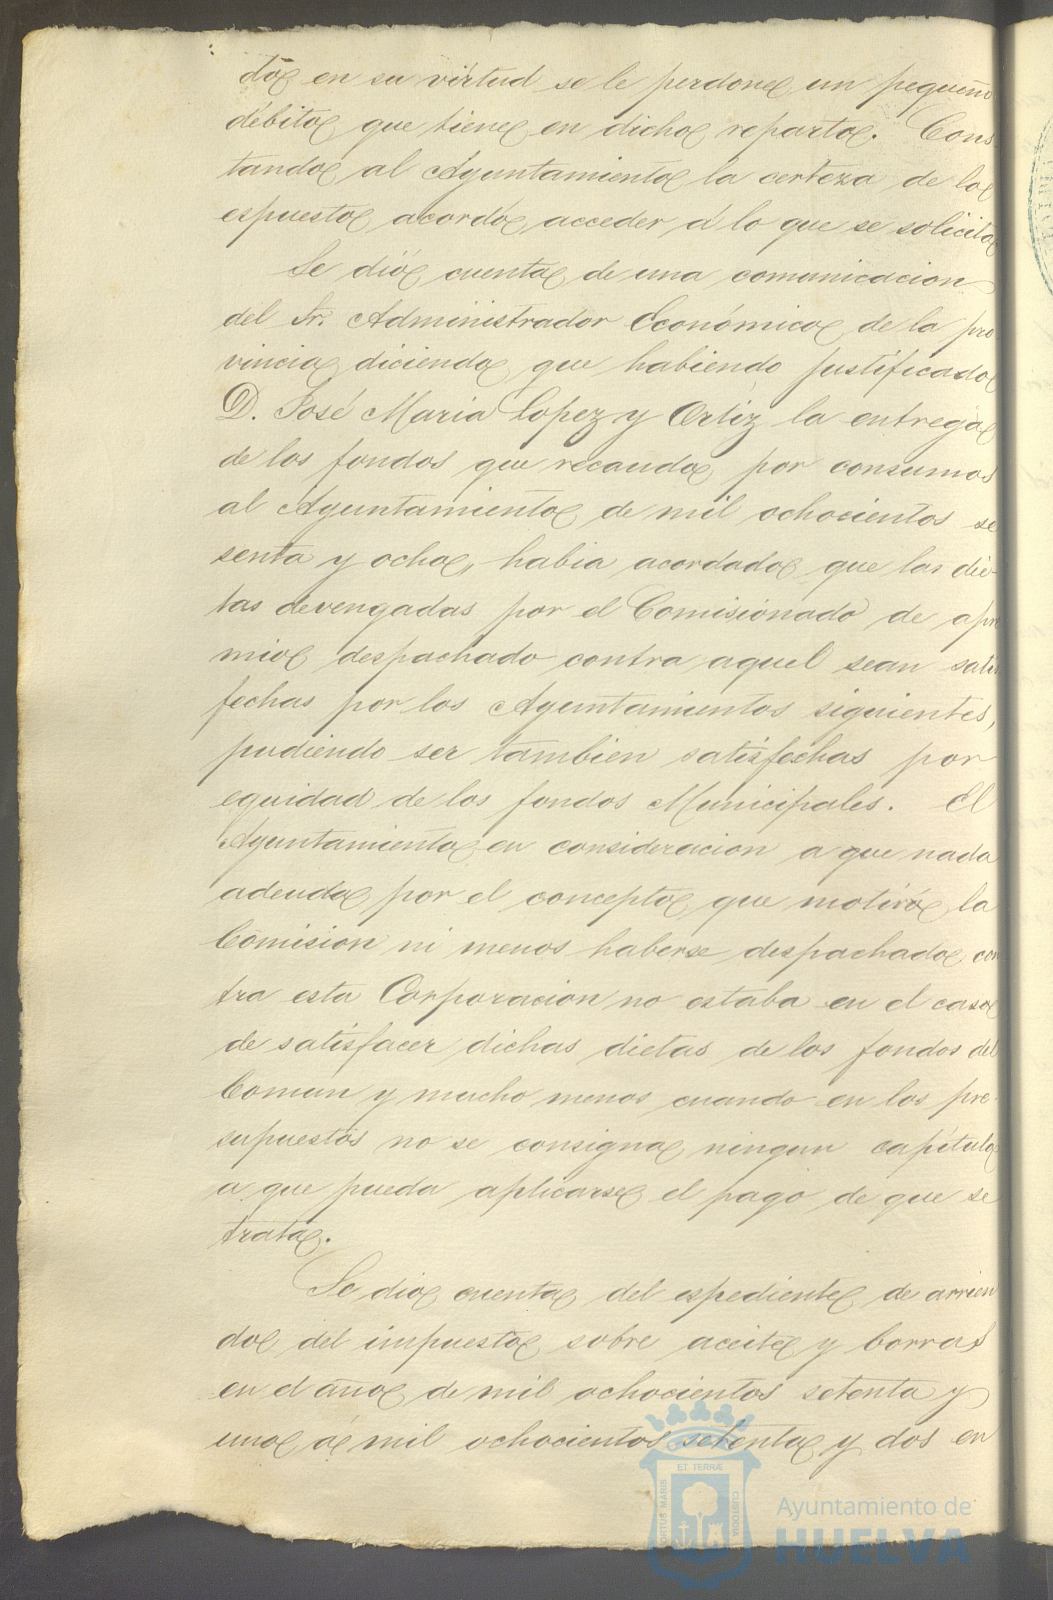 do en su virtud se le perdone un pequeño
débito que tiene en dicho reparto. Cons-
tando al Ayuntamiento la certeza de lo
espuesto acordó acceder á lo que se solicita
Se dió cuenta de una comunicacion
del Sr. Administrador Económico de la pro-
vincia diciendo que habiendo justificado
D. José Maria Lopez y Ortiz la entrega
de los fondos que recaudó por consumos
al Ayuntamiento de mil ochocientos se
senta y ocho, habia acordado que las die-
tas devengadas por el Comisionado de apre
mio despachado contra aquel sean satis
fechas por los Ayuntamientos siguientes,
pudiendo ser tambien satisfechas por
equidad de los fondos Municipales. El
Ayuntamiento en consideracion a que nada
adeuda por el concepto que motivó la
Comision ni menos haberse despachado con
tra esta Corporacion no estaba en el caso
de satisfacer dichas dietas de los fondos del
Comun y mucho menos cuando en los pre-
supuestos no se consigna ningun capítulo
a que pueda aplicarse el pago de que se
trata.
Se dio cuenta del espediente de arrien
do del impuesto sobre aceite y borras
en el año de mil ochocientos setenta y
uno á mil ochocientos setenta y dos en
ET TERRÆ
PORTUS MARIS
CUSTODIA
Ayuntamiento de
HUELVA